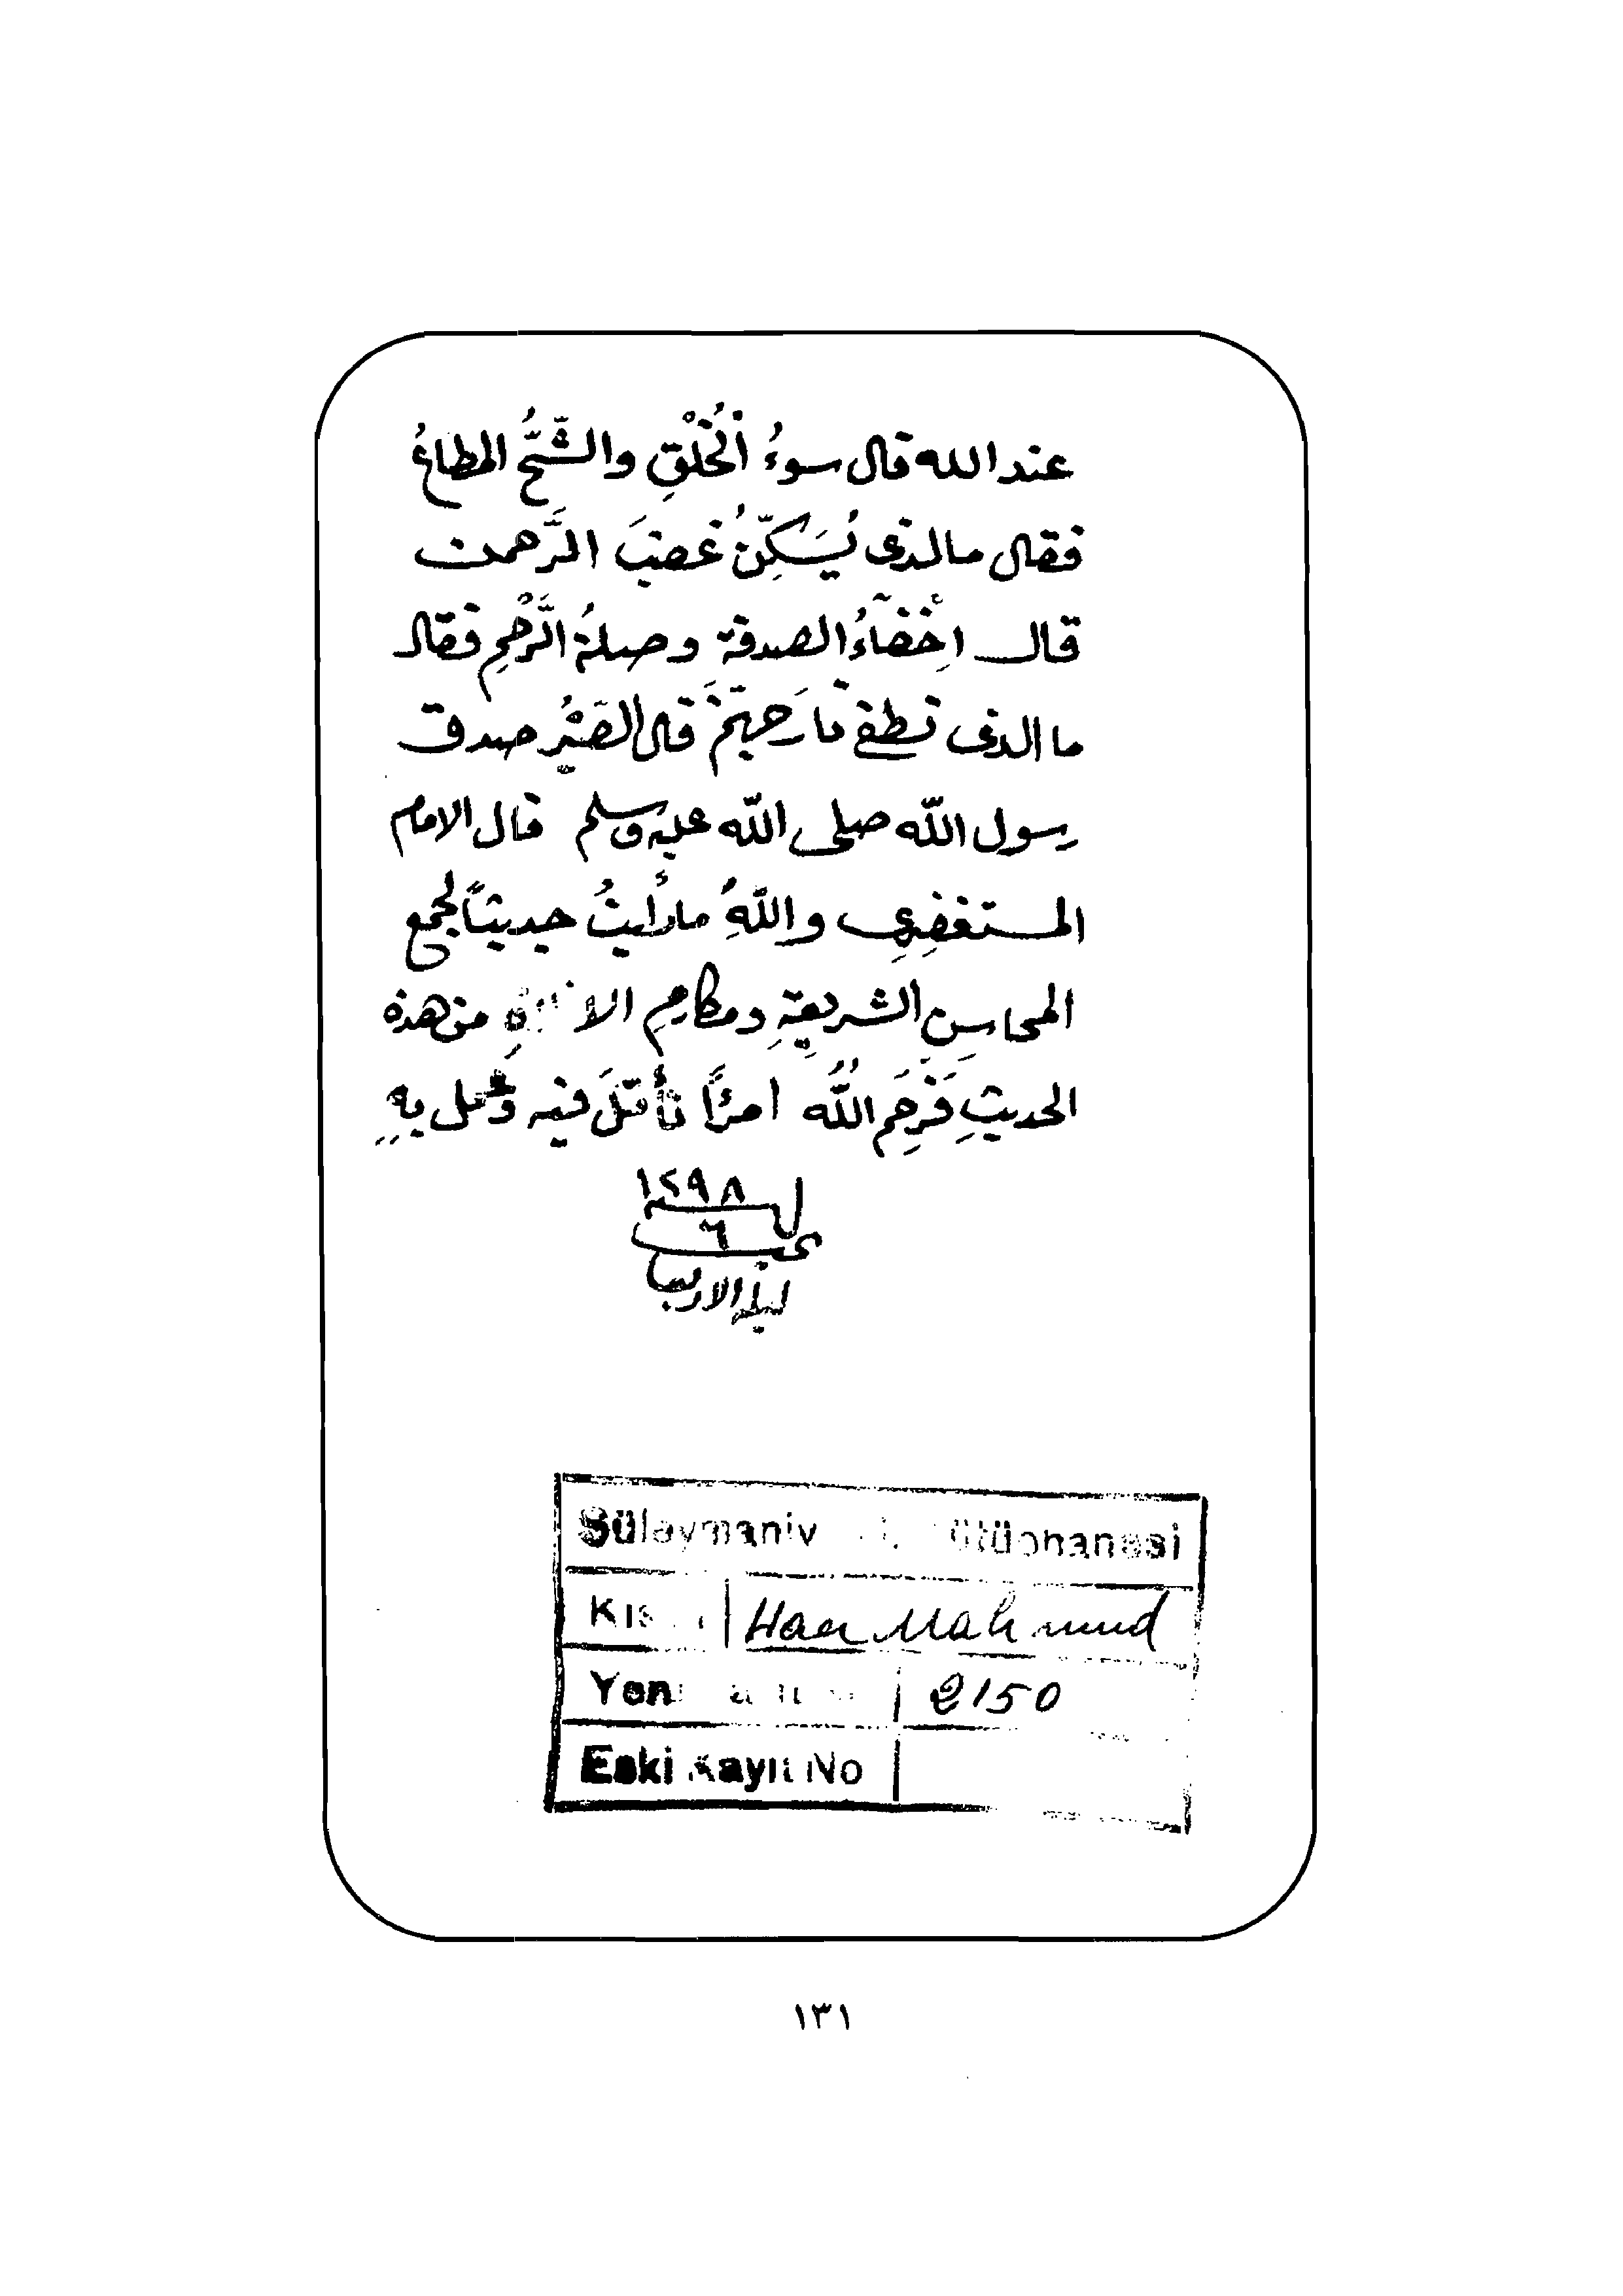 عند الله قال سوءُ اْلخُلْقِ والشُّحُّ المطاعُ
فقال ما لذى يُسَكِّنُ غَضَبَ الرَّحمن
قال اِخْفَآءُ الصدقة وصلةُ الرَّحْمِ فقال
ما الذى تطفئ نارَ جهنّمَ قال الصَبْرُ صدق
رسول الله صلى الله عليه وسلم قال الامام
المستغفرِى واللّٰهِ ما رأيتُ حديثاً لجمع
المحاسن الشريعةِ ومكارمِ من هذه
الحديثِ فَرَحِمَ اللّٰهُ امرًأ تأمّلَ فيه وعمل بهِ
١٢٩٨
٦
ليلة الاربعا
Süleymaniy ütüphanesi
Hacı Mahmud
Yeni 2150
Eski Kayıt No
١٣١